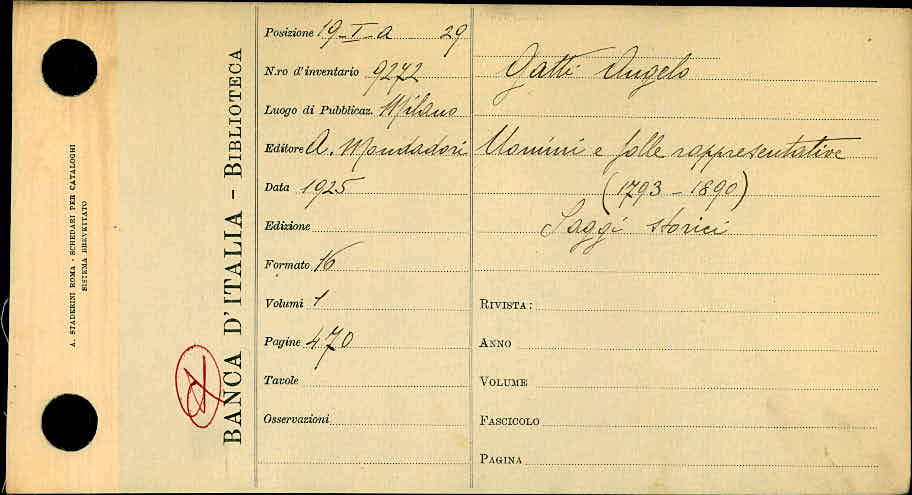 A. STADERINI ROMA - SCHEDARI PER CATALOGHI
SISTEMA BREVETTATO
BANCA D'ITALIA - BIBLIOTECA
Posizione 19-I-a 29
N.ro d'inventario 9272
Luogo di Pubblicaz. Milano
Editore A. Mondadori
Data 1925
Edizione
Formato 16
Volumi 1
Pagine 470
Tavole
Osservazioni
Gatti Angelo
Uomini e folle rappresentative
(1793-1890)
Saggi storici
RIVISTA:
ANNO
VOLUME
FASCICOLO
PAGINA